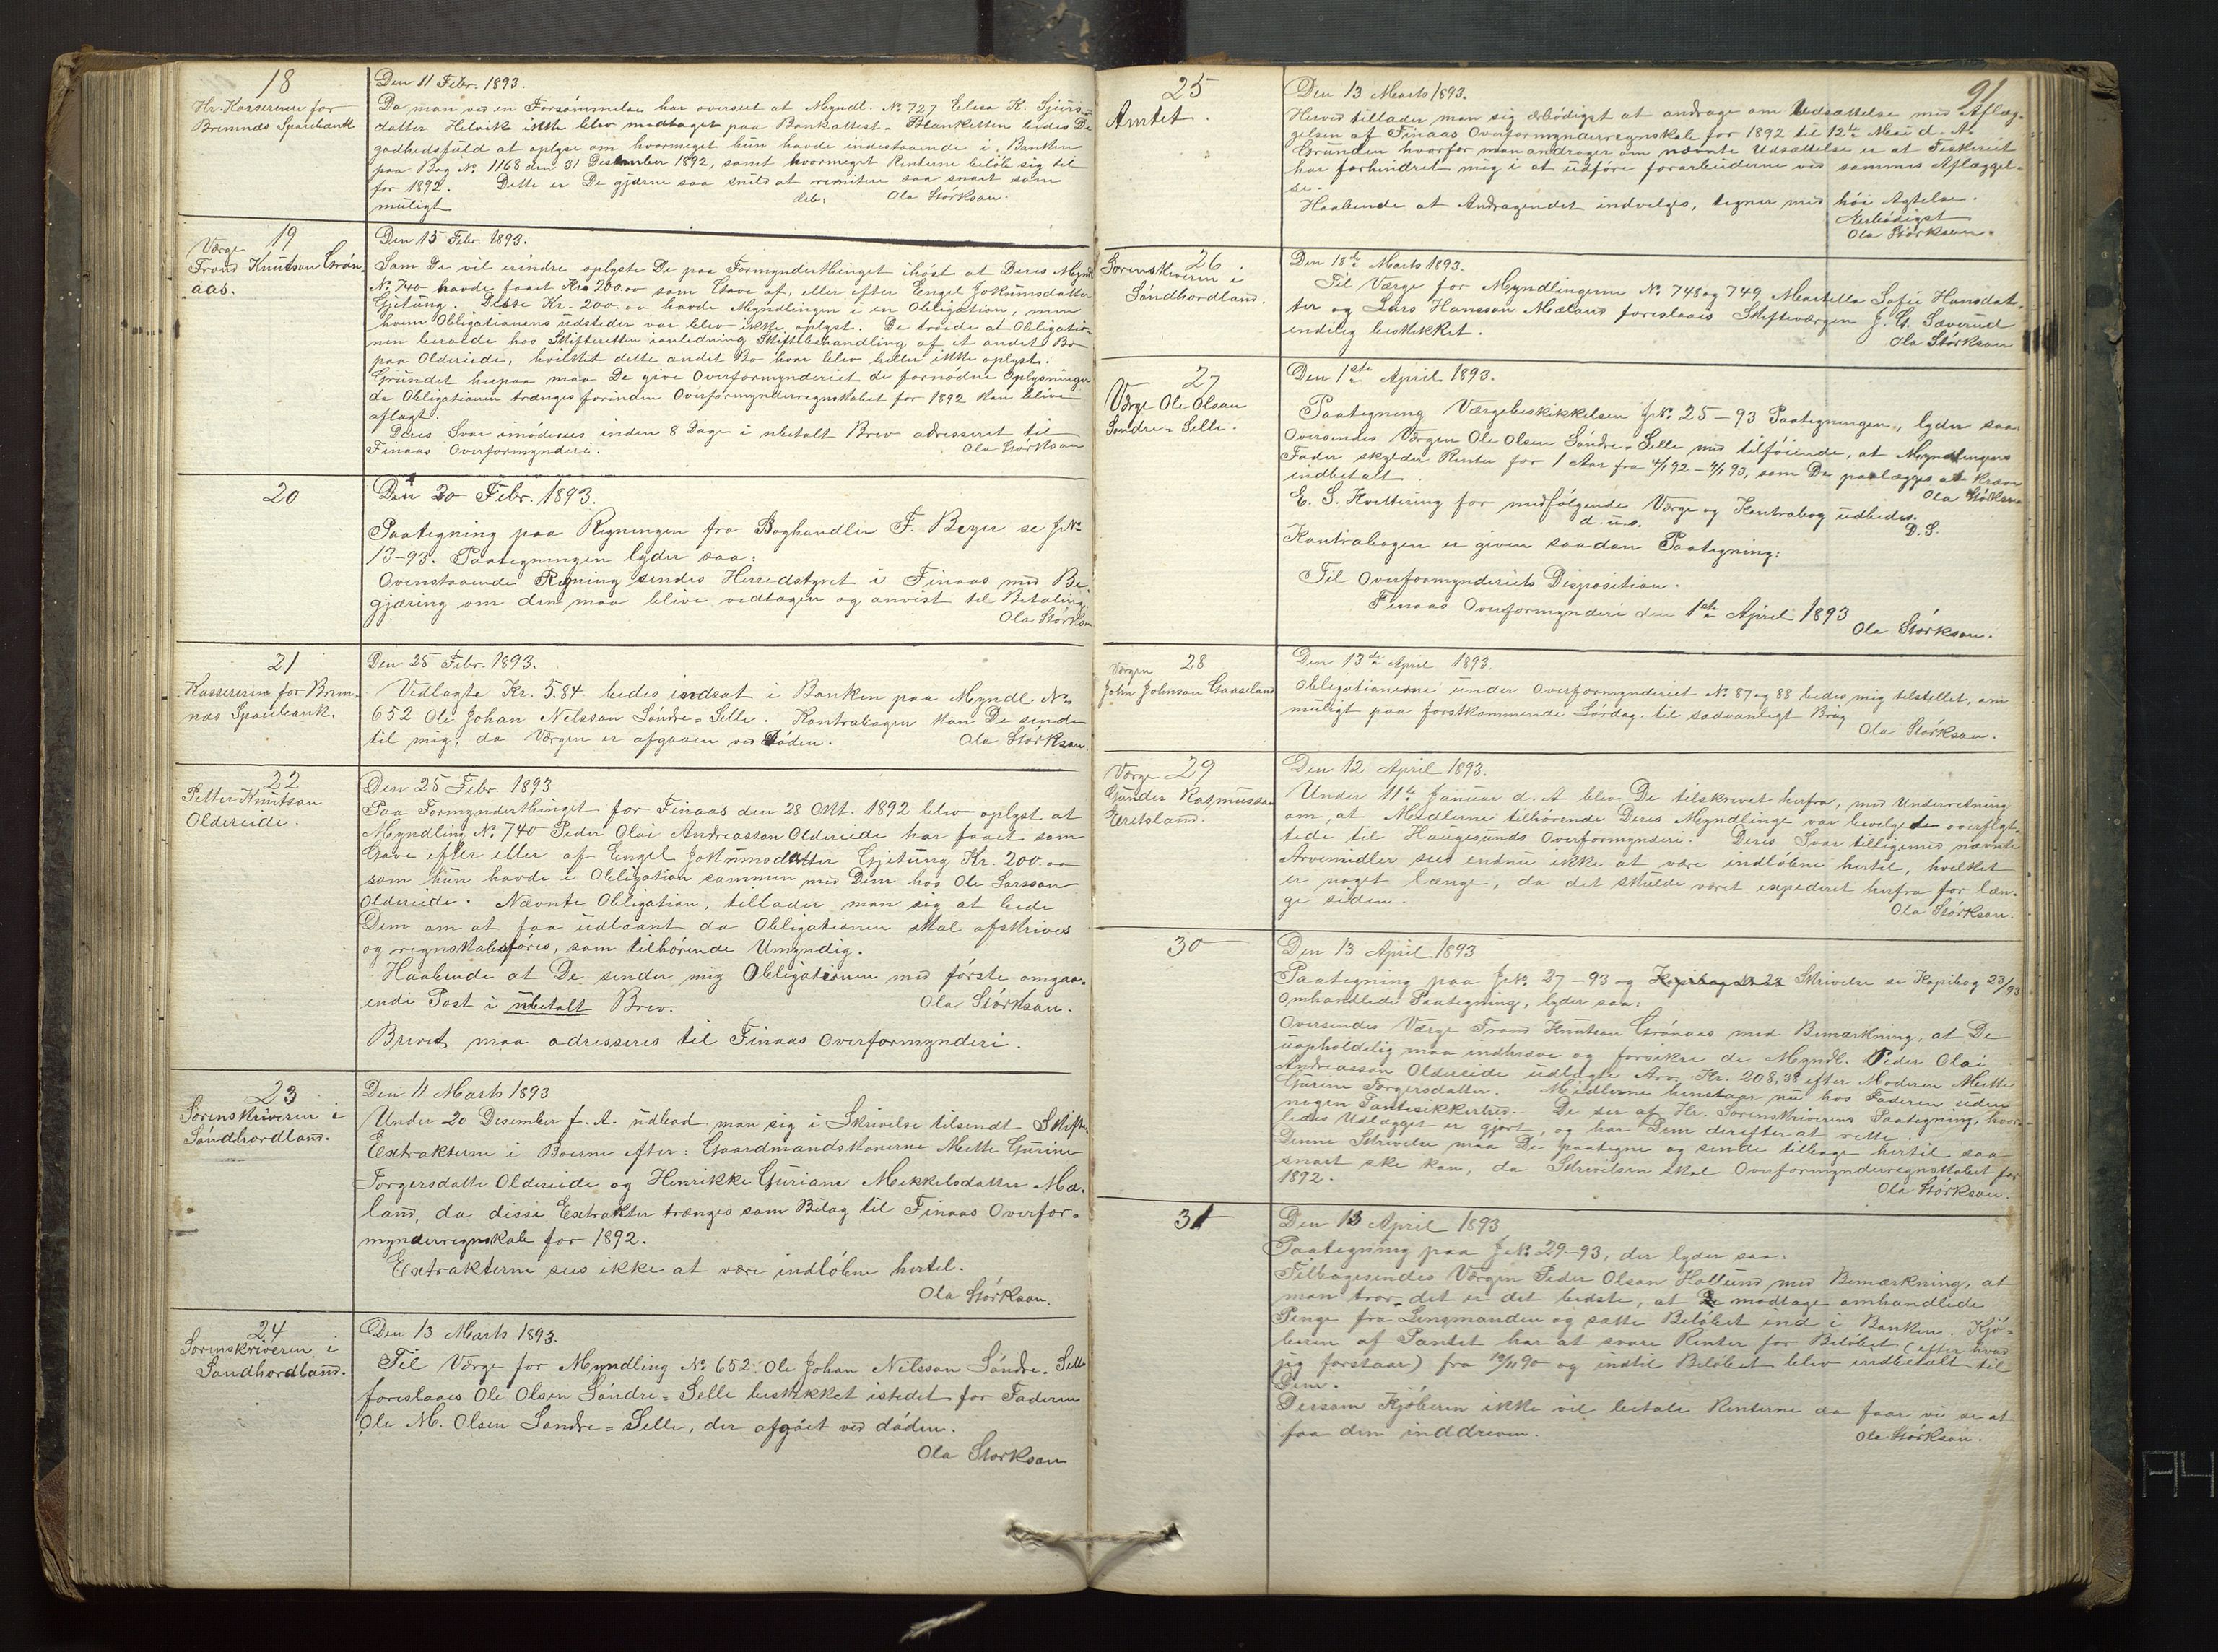 18
Hr. Kassereren for
Bremnæs Sparebank
Den 11 Febr. 1893.
Da man ved en Forsømmelse har overseet at Myndl. No 727 Elisa K. Sjurs-
datter Helvik ikke blev medtaget paa Bankattest-Blanketten bedes De
godhedsfuld at oplyse om hvormeget hun havde indestaaende i Banken
paa Bog No 1168 den 31 Desember 1892, samt hvormeget Renterne beløb sig til
for 1892. Dette er De gjerne saa snild at remitere saa snart som
muligt Ærb: Ola Størkson.
19
Værge
Trond Knutson Grøn-
aas.
Den 15 Febr. 1893.
Som De vil erindre oplyste De paa Formynderthinget ihøst at Deres Myndl.
No 740 havde faaet Kr. 200.00 som Gave af, eller efter Engel Jokumsdatter
Gjetung. Disse Kr. 200.00 havde Myndlingen i en Obligation, men
hvem Obligationens Udsteder var blev ikke oplyst. De troede at Obligatio-
nen beroede hos Skifteretten i anledning Skiftebehandling af et andet Bo
paa Oldereide, hvilket dette andet Bo hvor blev heller ikke oplyst.
Grundet herpaa maa De give Overformynderiet de fornødne Oplysninger
da Obligationen trænges forinden Overformynderregnskabet for 1892 kan blive
aflagt.
Deres Svar imødesees inden 8 Dage i ubetalt Brev adresseret til
Finaas Overformynderi. Ola Størkson
20
Den 20 Febr. 1893.
Paategning paa Regningen fra Boghandler F. Beyer se JNo
13-93. Paategningen lyder saa:
Ovenstaaende Regning sendes Herredstyret i Finaas med Be-
gjæring om den maa blive vedtagen og anvist til Betaling.
Ola Størkson
21
Kassereren for Brem-
næs Sparebank.
Den 25 Febr. 1893.
Vedlagte Kr. 5.84 bedes indsat i Banken paa Myndl. No
652 Ole Johan Nelsson Søndre=Selle. Kontrabogen kan De sende
til mig, da Værgen er afgaaen ved Døden. Ola Størkson.
22
Petter Knutson
Oldereide.
Den 25 Febr. 1893
Paa Formynderthinget for Finaas den 28 Okt. 1892 blev oplyst at
Myndling No 740 Peder Olai Andreasson Oldereide har faaet som
Gave efter eller af Engel Jokumsdatter Gjetung Kr. 200.00
som hun havde i Obligation sammen med Dem hos Ole Larsson
Oldereide. Nævnte Obligation, tillader man sig at bede
Dem om at faa udlaant da Obligationen skal afskrives
og regnskabsføres, som tilhørende Umyndig.
Haabende at De sender mig Obligationen med første omgaa-
ende Post i ubetalt Brev. Ola Størkson.
Brevet maa adresseres til Finaas Overformynderi.
23
Sorenskriveren i
Søndhordland.
Den 11 Marts 1893
Under 20 Desember f. A. udbad man sig i Skrivelse tilsendt Skifte
Extrakterne i Boerne efter: Gaardmandskonerne Mette Gurine
Torgersdatte Oldereide og Henrikke Guriane Mekkelsdatter Mæ-
land, da disse Extrakter trænges som Bilag til Finaas Overfor-
mynderregnskab for 1892.
Extrakterne sees ikke at være indløbne hertil.
Ola Størkson.
24
Sorenskriveren i
Søndhordland.
Den 13 Marts 1893.
Til Værge for Myndling No 652: Ole Johan Nilsson Søndre-Selle
foreslaaes Ole Olsen Søndre=Selle beskikket istedet for Faderen
Ole M. Olsen Søndre=Selle, der afgået ved døden.
Ola Størkson
91
25
Amtet.
Den 13 Marts 1893.
Herved tillader man sig ærbødigst at andrage om Udsættelse med Aflæg-
gelsen af Finaas Overformynderregnskab for 1892 til 12te Mai d. A.
Grunden hvorfor man andrager om nævnte Udsættelse er at Fiskeriet
har forhindret mig i at udføre forarbeiderne ved sammes Aflæggel-
se.
Haabende at Andragendet indvilges, tegner med høi Agtelse.
Ærbødigst
Ola Størkson.
26
Sorenskriveren i
Søndhordland.
Den 18de Marts 1893.
Til Værge for Myndlingerne No 748 og 749 Martella Sofie Hansdat-
ter og Lars Hansson Mæland foreslaaes Skifteværgen J. G. Sæverud
endelig beskikket. Ola Størkson
27
Værge Ole Olsen
Søndre=Selle.
Den 1ste April 1893.
Paategning Værgebeskikkelsen JNo. 25-93 Paategningen, lyder saa:
Oversendes Værgen Ole Olsen Søndre=Selle med tilføiende, at Myndlingens
Fader skylder Renter for 1 Aar fra 4/1 92 - 4/1 93, som De paalægges at kræve
indbetalt. Ola Størkson
E. S. Kvittering for medfølgende Værge og Kontrabog udbedes.
d. u. s. D.S.
Kontrabogen er given saadan Paategning:
Til Overformynderiets Disposition.
Finaas Overformynderi den 1ste April 1893
Ola Størkson.
28
Værgen
John Johnson Gaaseland
Den 13de April 1893.
Obligationerne under Overformynderiet No. 87 og 88 bedes mig tilstillet, om
muligt paa førstkommende Lørdag, til sædvanligt Brug
Ola Størkson.
29
Værge
Gunder Rasmusson
Eretsland.
Den 12 April 1893.
Under 11te Januar d. A blev De tilskrevet herfra, med Underretning
om, at Midlerne tilhørende Deres Myndlinge var bevilgede overflyt-
tede til Haugesunds Overformynderi. Deres Svar tilligemed nævnte
Arvemidler sees endnu ikke at være indløbne hertil, hvilket
er noget længe, da det skulde været expederet herfra for læn-
ge siden. Ola Størkson.
30
Den 13 April 1893
Paategning paa JNo. 27-93 og Skrivelse se Kopibog 23/93
Omhandlede Paategning, lyder saa:
Oversendes Værge Trond Knutson Grønaas med Bemærkning, at De
uopholdelig maa indkræve og forsikre de Myndl. Peder Olai
Andreasson Oldereide udlagte Arv. Kr. 208,38 efter Moderen Mette
Gurine Torgersdatter. Midlerne henstaar nu hos Faderen uden
nogen Pantesikkerhed. De ser af Hr. Sorenskriverens Paategning, hvor-
ledes Udlægget er gjort, og har Dem derefter at rette.
Denne Skrivelse maa De paategne og sende tilbage hertil saa
snart ske kan, da Skrivelsen skal Overformynderregnskabet for
1892. Ola Størkson.
31
Den 13 April 1893
Paategning paa JNo. 29-93, der lyder saa:
Tilbagesendes Værgen Peder Olson Hollund med Bemærkning, at
man tror det er det bedste, at De modtage omhandlede
Penge fra Lensmanden og sætte Beløbet ind i Banken. Kjø-
beren af Pantet har at svare Renter for Beløbet (efter hvad
jeg forstaar) fra 19/11 90 og indtil Beløbet blev indbetalt til
Dem.
Dersom Kjøberen ikke vil betale Renterne da faar vi se at
faa den inddreven. Ola Størkson.